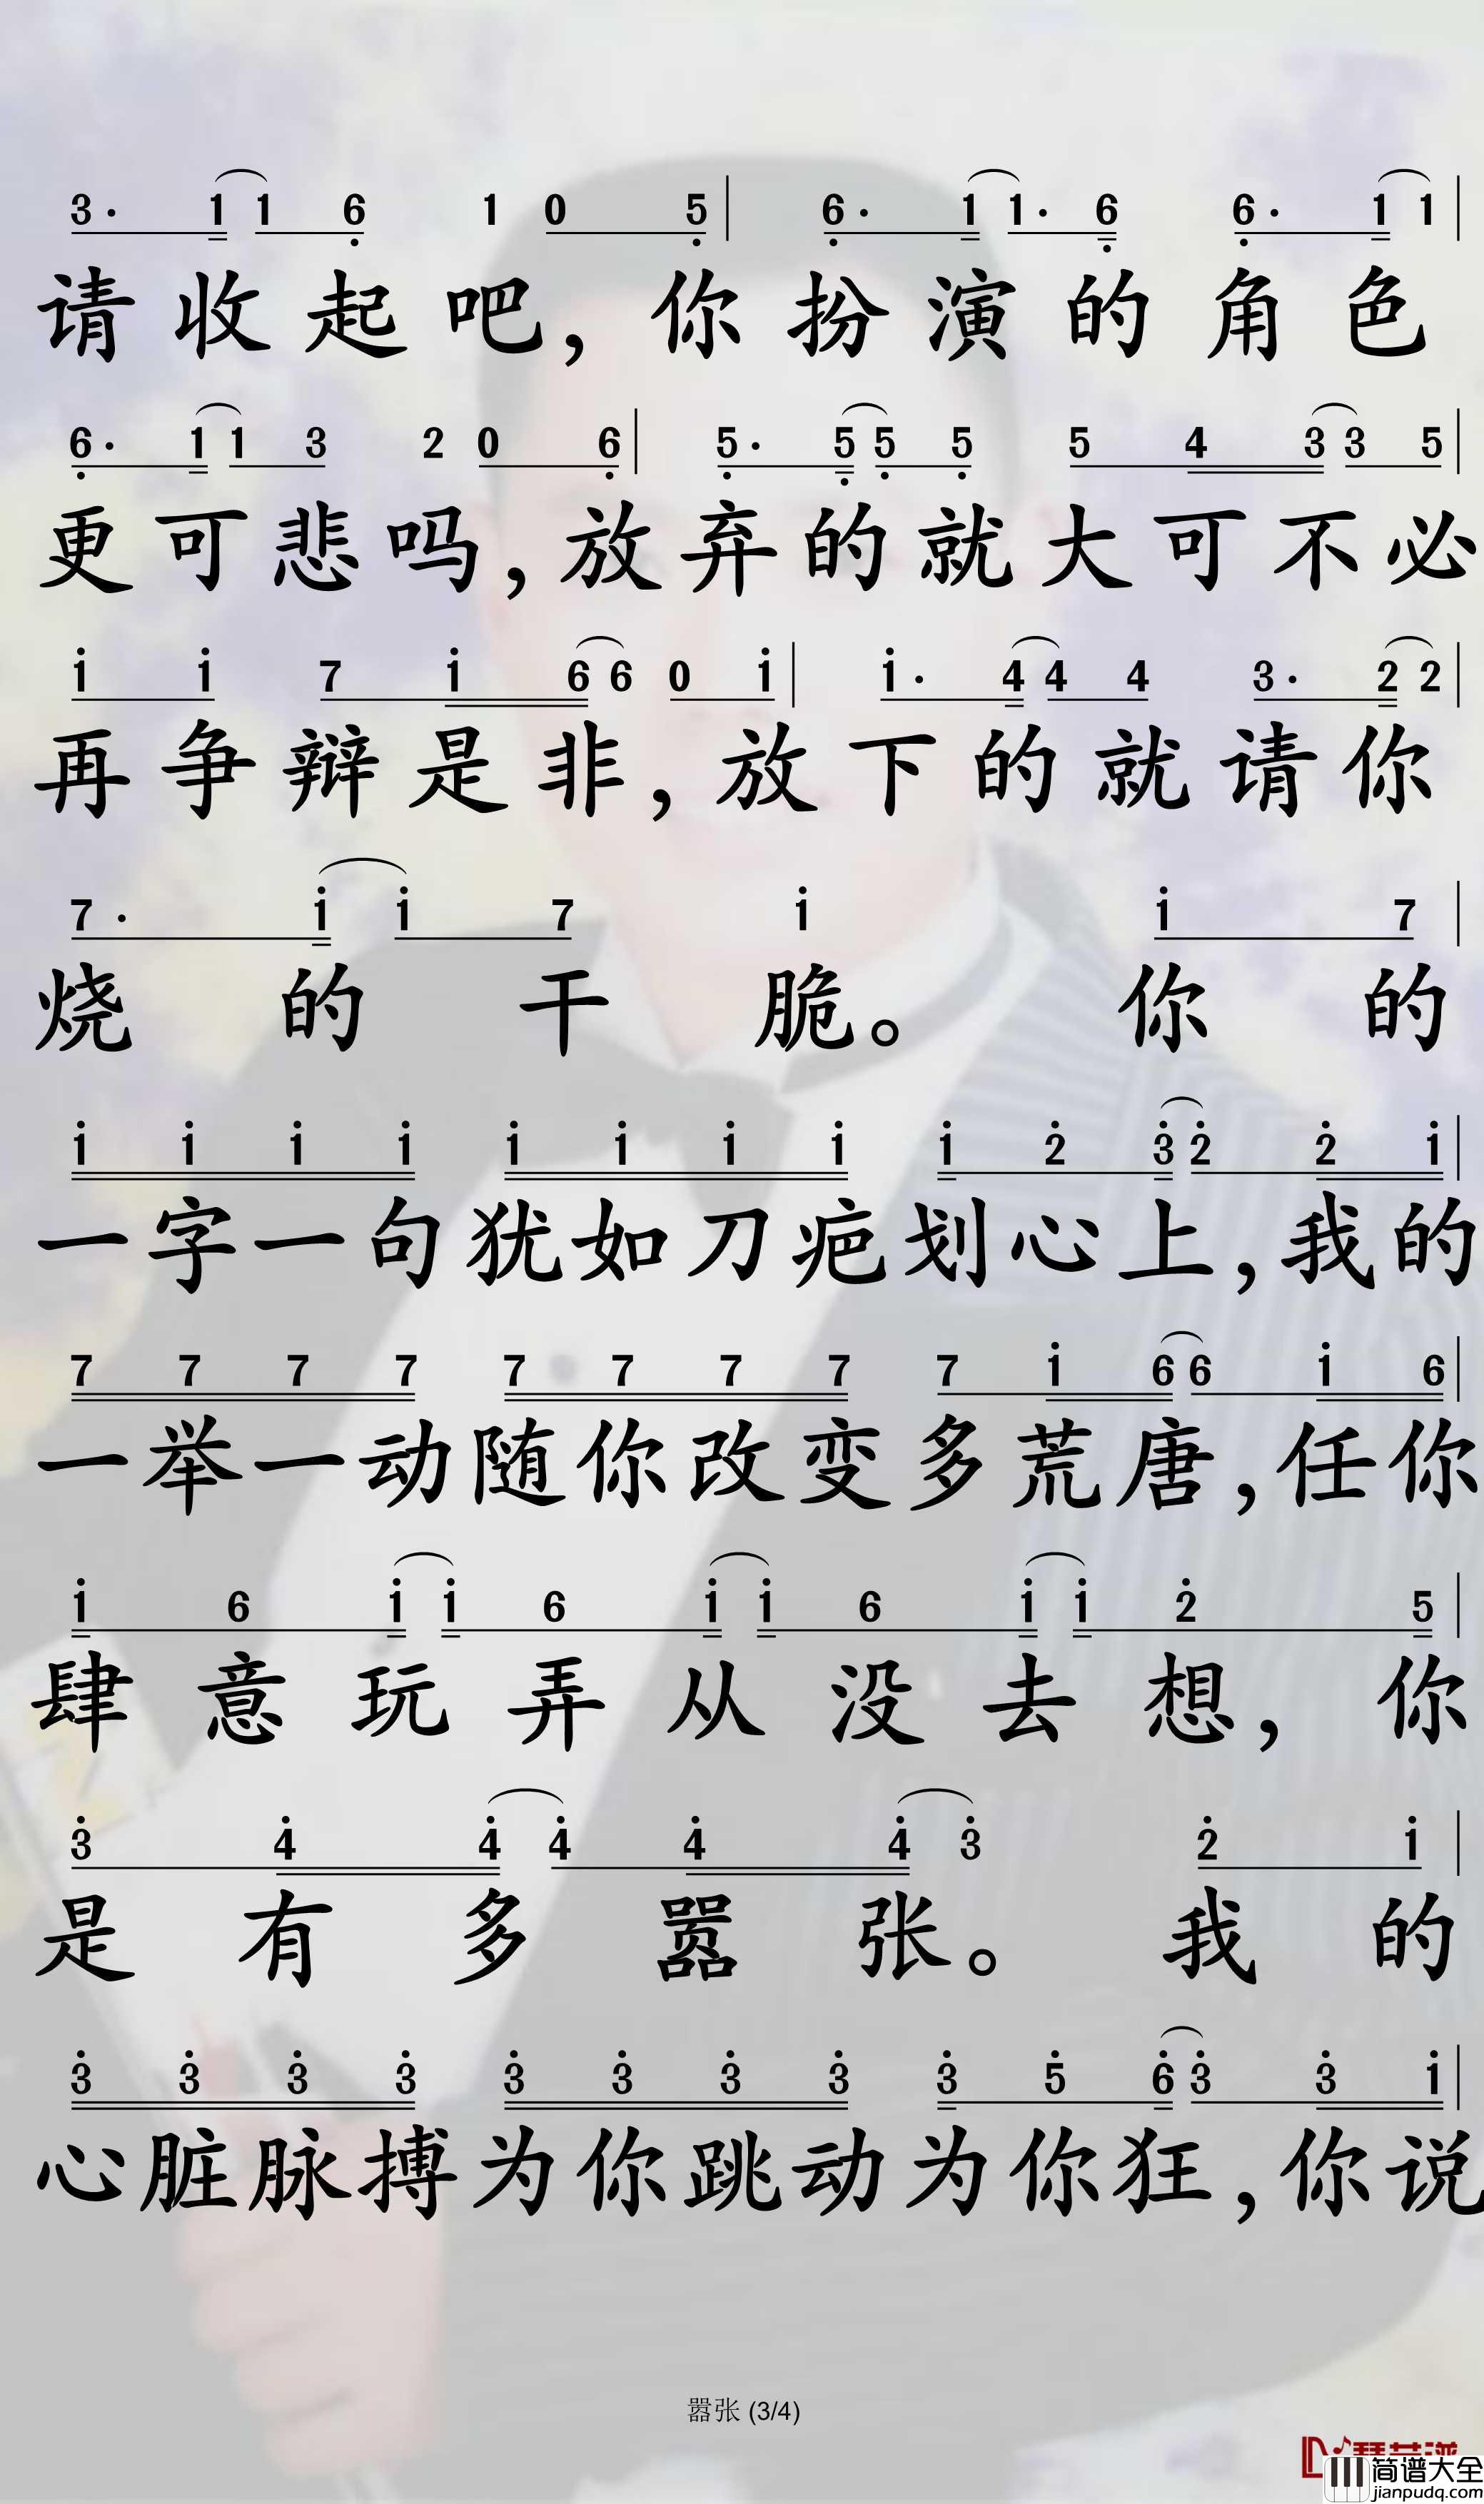 3· 1 1 6 1 0 5 | 6· 1 1· 6 6· 1 1 |
请收起吧，你扮演的角色
6· 1 1 3 2 0 6 | 5· 5 5 5 5 4 3 3 5 |
更可悲吗，放弃的就大可不必
i i 7 i 6 6 0 i | i· 4 4 4 3· 2 2 |
再争辩是非，放下的就请你
7· i i 7 i i 7 |
烧的干脆。你的
i i i i i i i i i 2 3 2 2 i |
一字一句犹如刀疤划心上，我的
7 7 7 7 7 7 7 7 7 i 6 6 i 6 |
一举一动随你改变多荒唐，任你
i 6 i i 6 i i 6 i i 2 5 |
肆意玩弄从没去想，你
3 4 4 4 4 4 3 2 i |
是有多嚣张。我的
3 3 3 3 3 3 3 3 3 5 6 3 3 i |
心脏脉搏为你跳动为你狂，你说
嚣张 (3/4)
简谱大全
jianpudq.com